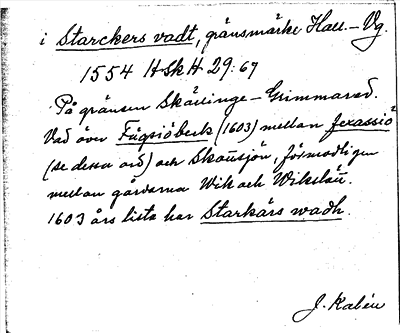 i Starckers vadt, gränsmärke Hall.–Vg.
1554 HSkH 29:67
På gränsen Skällinge–Grimmared.
Vad över Fügsiöbeck (1603) mellan Jexassiö
(se dessa ord) och Skäusjön, förmodligen
mellan gårdarna Wik och Wikslätt.
1603 års lista har Starkärs wadh.
J. Kalén